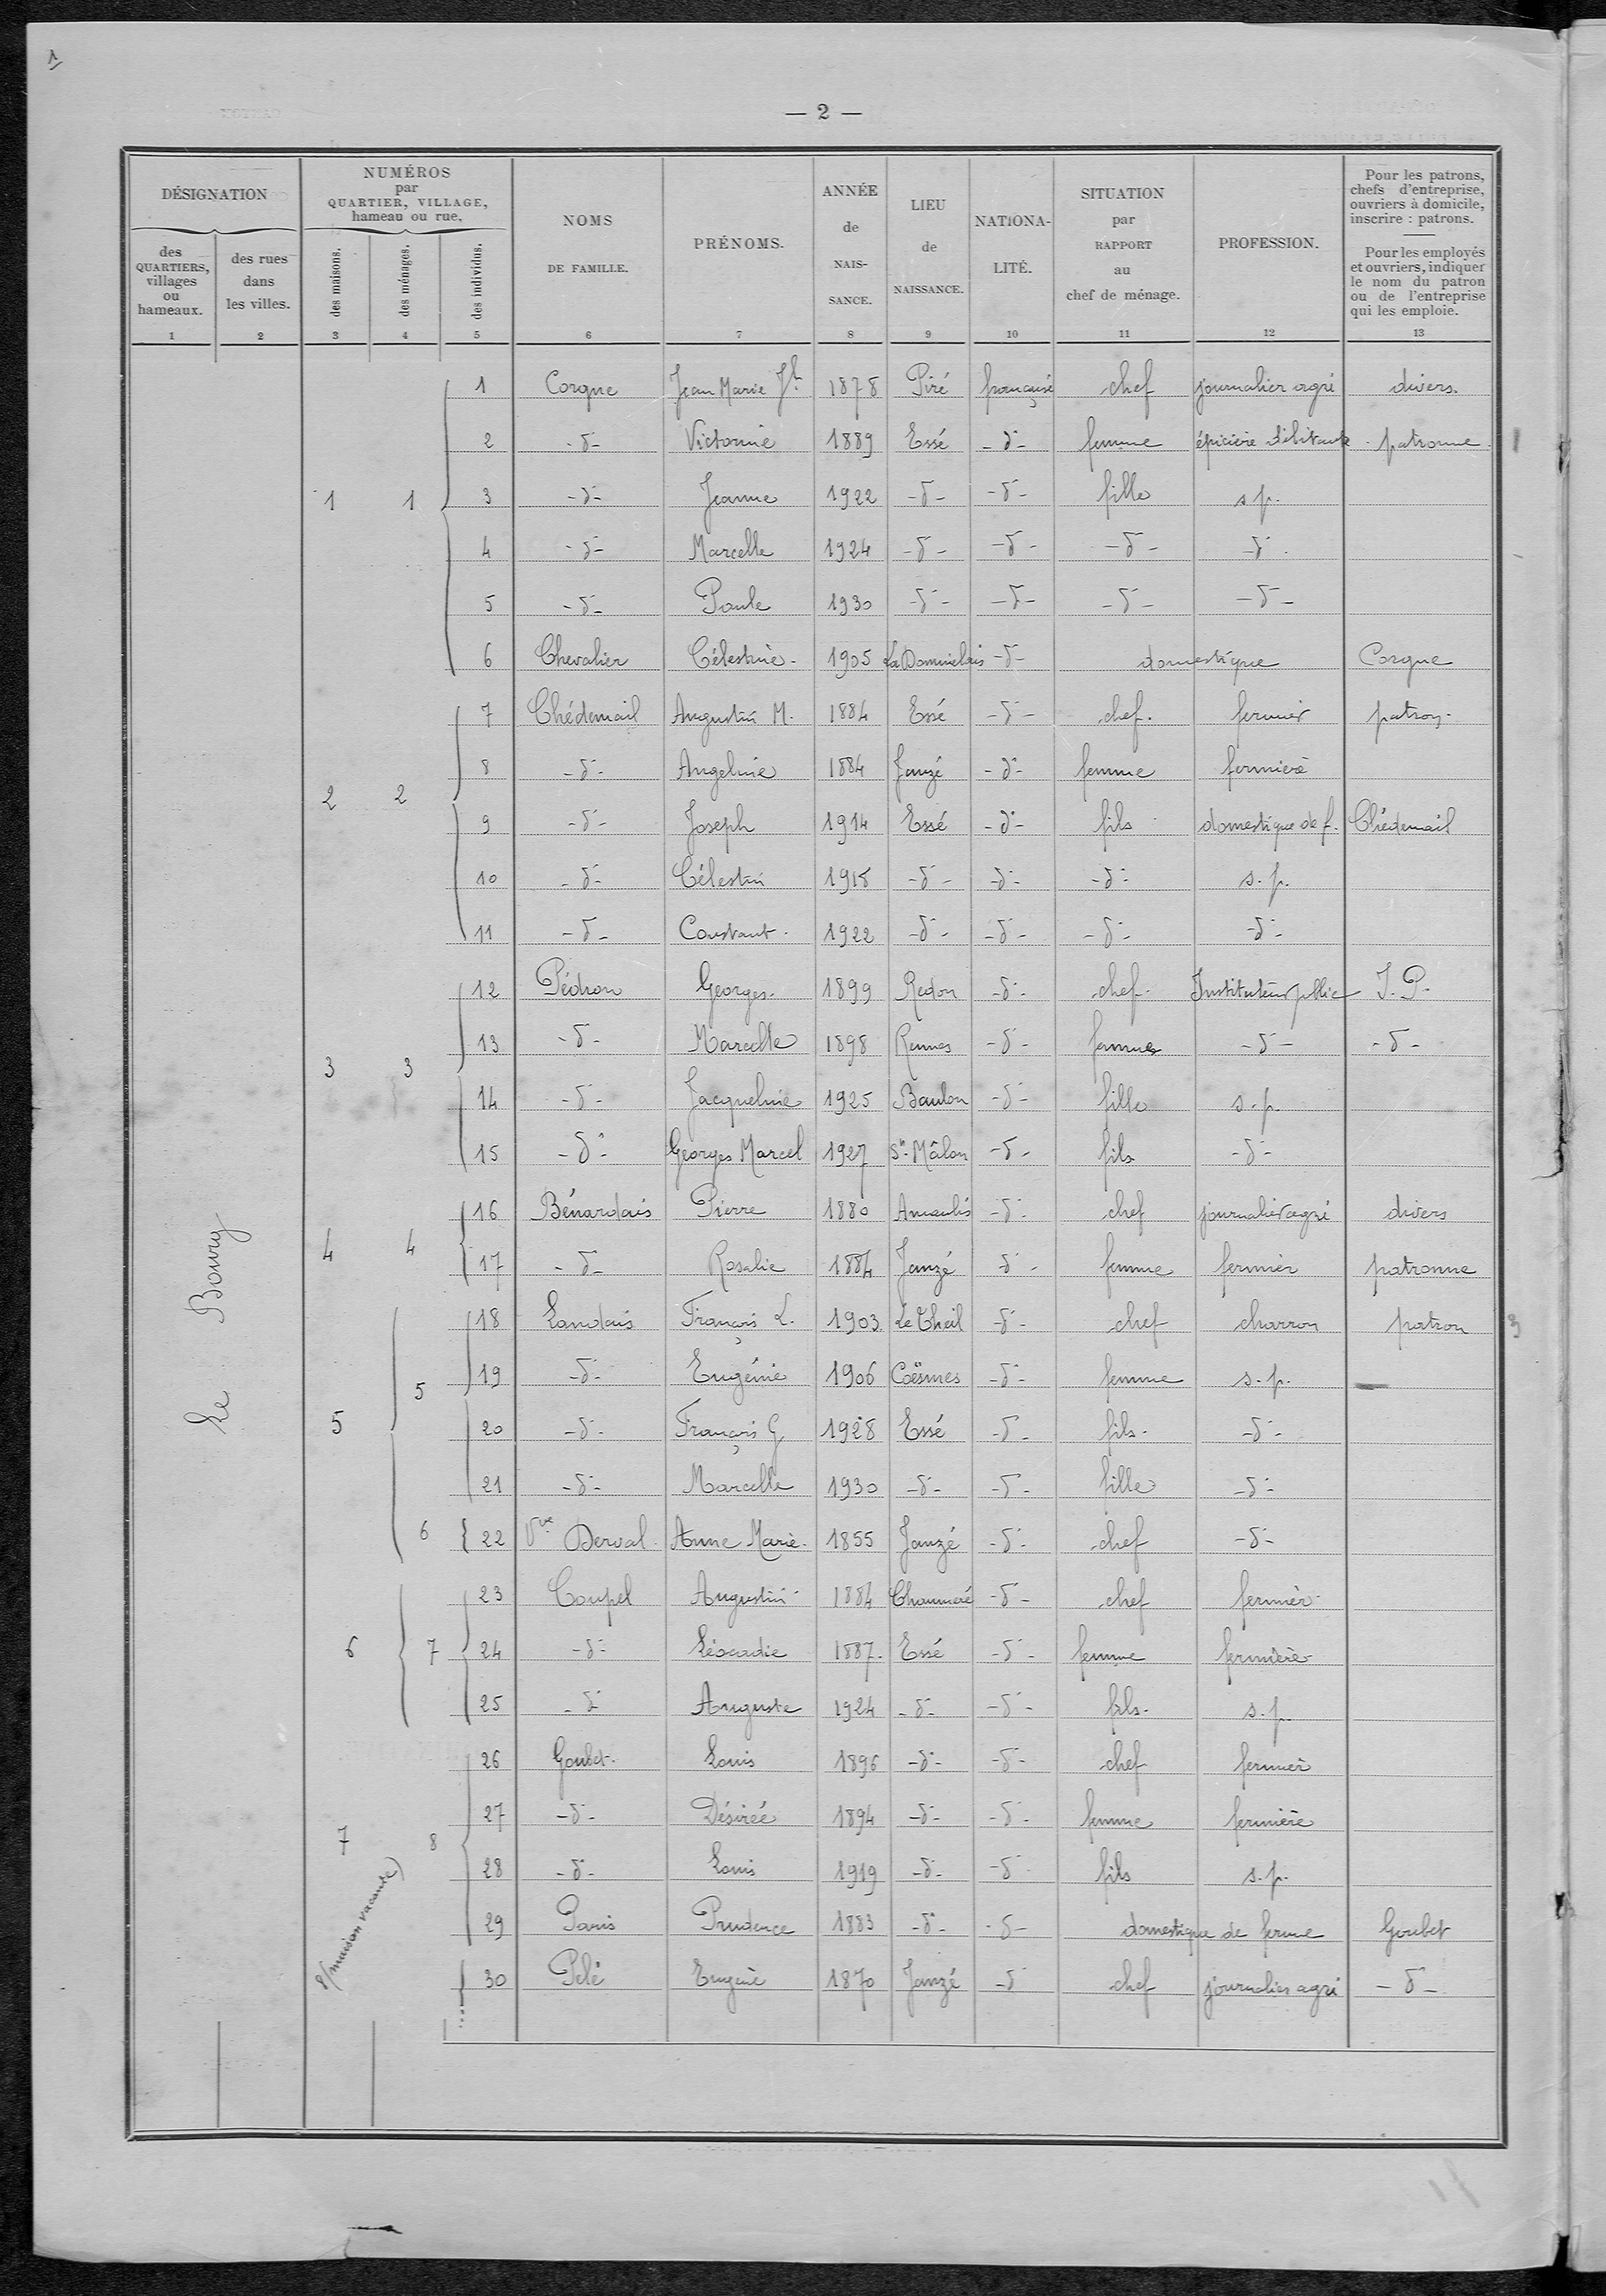 1
— 2 —
DÉSIGNATION
des QUARTIERS, villages ou hameaux.
des rues dans les villes.
NUMÉROS par QUARTIER, VILLAGE, hameau ou rue.
des maisons.
des ménages.
des individus.
NOMS DE FAMILLE.
PRÉNOMS.
ANNÉE de NAIS- SANCE.
LIEU de NAISSANCE.
NATIONA- LITÉ.
SITUATION par RAPPORT au chef de ménage.
PROFESSION.
Pour les patrons, chefs d'entreprise, ouvriers à domicile, inscrire : patrons.
Pour les employés et ouvriers, indiquer le nom du patron ou de l'entreprise qui les emploie.
1 2 3 4 5 6 7 8 9 10 11 12 13
Le Bourg
1 Corgne Jean Marie Jh 1878 Piré française chef journalier agri divers.
2 -d°- Victorine 1889 Essé -d°- femme épicière débitante patronne.
1 1 3 -d°- Jeanne 1922 -d°- -d°- fille s.p.
4 -d°- Marcelle 1924 -d°- -d°- -d°- -d°-
5 -d°- Paule 1930 -d°- -d°- -d°- -d°-
6 Chevalier Célestine. 1905 La Dominelais -d°- domestique Corgne
7 Chédemail Augustin M. 1884 Essé -d°- chef. fermier patron.
8 -d°- Angeline 1884 Janzé -d°- femme fermière
2 2 9 -d°- Joseph 1914 Essé -d°- fils domestique de f. Chédemail
10 -d°- Célestin 1918 -d°- -d°- -d°- s.p.
11 -d°- Constant. 1922 -d°- -d°- -d°- -d°-
12 Pédron Georges. 1899 Redon -d°- chef. Instituteur pblic I.P.
13 -d°- Marcelle 1898 Rennes -d°- femme -d°- -d°-
3 3 14 -d°- Jacqueline 1925 Baulon -d°- fille s.p.
15 -d°- Georges Marcel 1927 St Mâlon -d°- fils -d°-
16 Bénardais Pierre 1880 Amanlis -d°- chef journalier agri divers
4 4 17 -d°- Rosalie 1884 Janzé -d°- femme fermier patronne
18 Landais François L. 1903 Le Theil -d°- chef charron patron
5 19 -d°- Eugénie 1906 Coësmes -d°- femme s.p.
5 20 -d°- François G 1928 Essé -d°- fils. -d°-
21 -d°- Marcelle 1930 -d°- -d°- fille -d°-
6 22 Vve Derval. Anne Marie. 1855 Janzé -d°- chef -d°-
23 Coupel Augustin 1884 Chaumeré -d°- chef fermier.
6 7 24 -d°- Léocadie 1887. Essé -d°- femme fermière
25 -d°- Auguste 1924 -d°- -d°- fils. s.p.
26 Goubet. Louis 1896 -d°- -d°- chef fermier
27 -d°- Désirée 1894 -d°- -d°- femme fermière
7 8 28 -d°- Louis 1919 -d°- -d°- fils s.p.
29 Paris Prudence 1883 -d°- -d°- domestique de ferme Goubet
8 (maison vacante)
30 Pelé Eugène 1870 Janzé -d° chef journalier agri -d°-